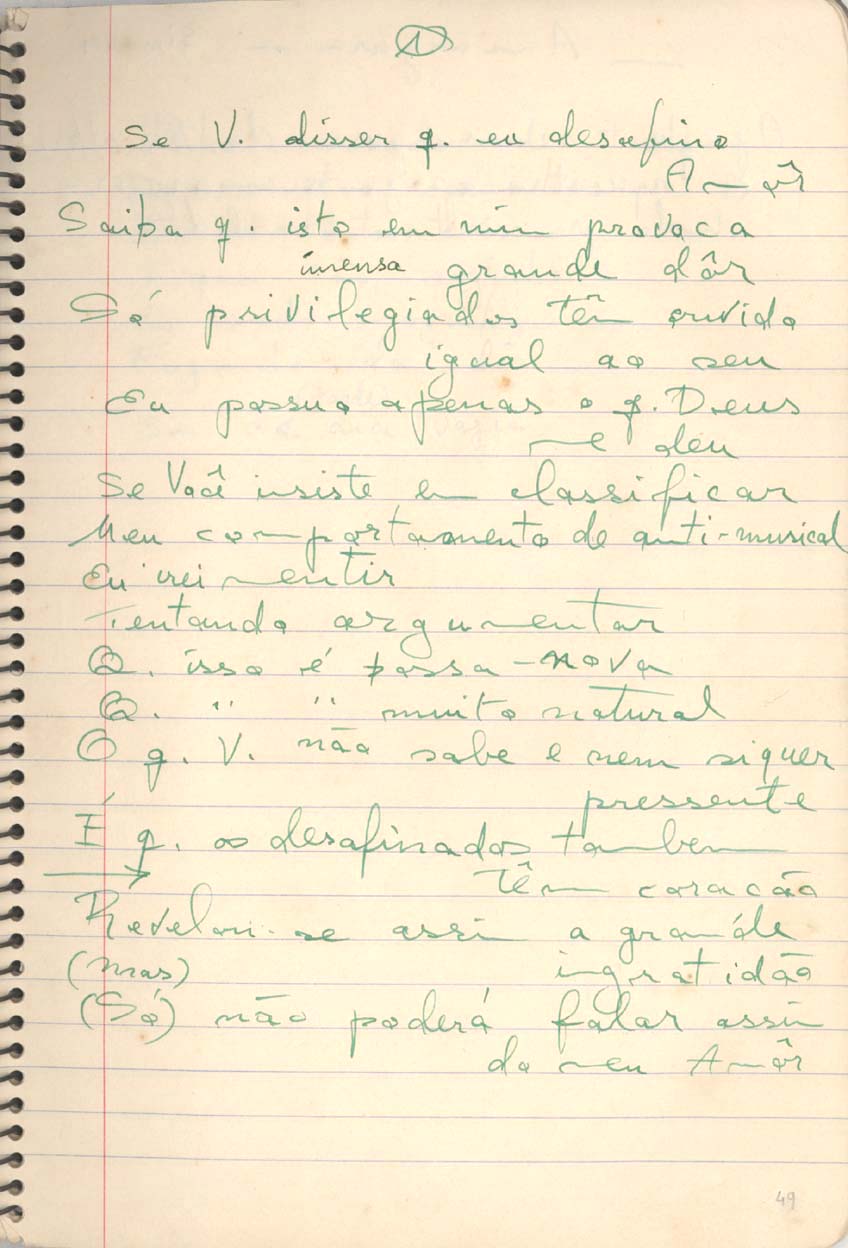 1
Se V. disser q. eu desafino
Amôr
Saiba q. isto em mim provoca
imensa grande dôr
Só privilegiados têm ouvido
igual ao seu
Eu possuo apenas o q. Deus
me deu
Se Você insiste em classificar
Meu comportamento de anti-musical
Eu irei mentir
Tentando argumentar
Q. isso é bossa-nova
Q. " " muito natural
O q. V. não sabe e nem siquer
pressente
É q. os desafinados tambem
têm coracão
Revelou-se assim a grande
(mas) ingratidão
(Só) não poderá falar assim
do meu Amôr
49